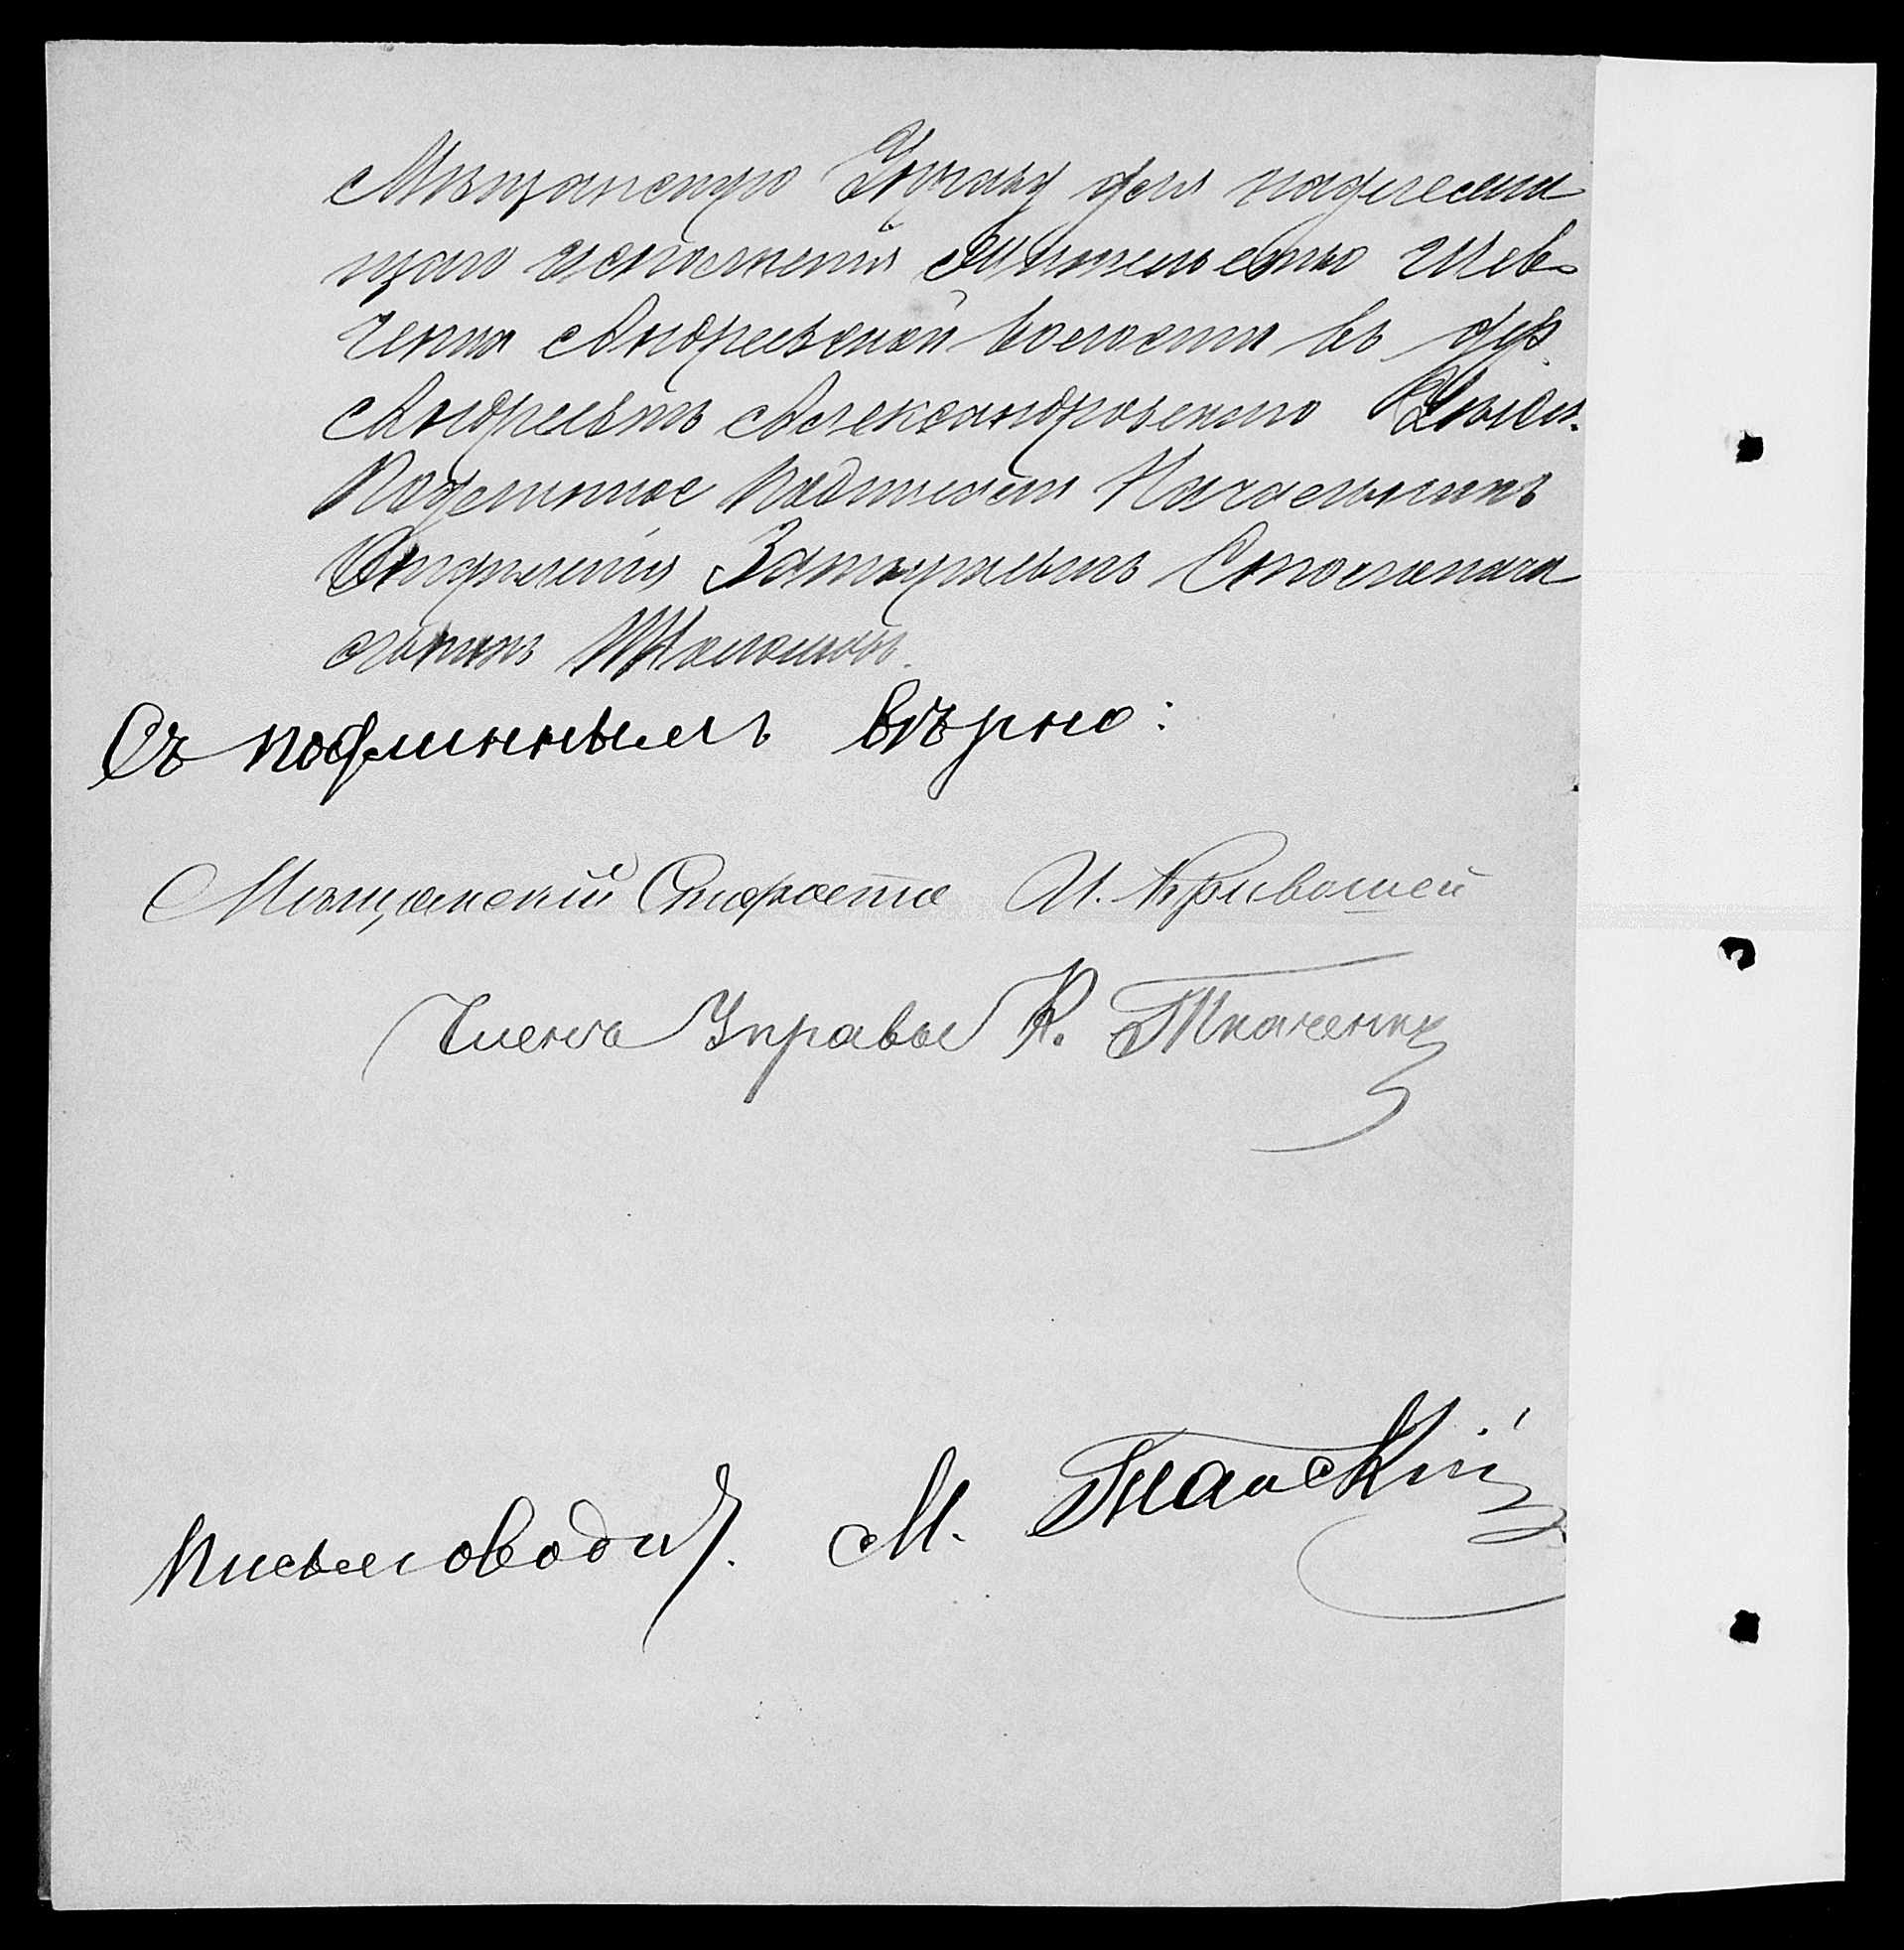 Мѣщанскую Управу для надлежа
щаго исполненія Жительство Шев-
ченко Андреевской волости въ дер.
Андреевкѣ Александровскаго Уѣзда.
Подлинное подписали Начальникъ
Отдѣленія За Столонача
льникъ
Съ подлиннымъ вѣрно:
Мѣщанскій Староста И. Кривошей
Члены Управы К. Ткаченко
Письмоводит. М.